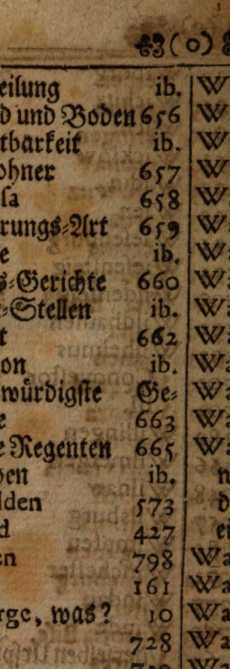 (o)
eilung ib. W
d und Boden 656 W
tbarkeit ib. W
ohner 657 W
sa 658 W
rungs-Art 659 W
e ib. W
s-Gerichte 660 Wa
-Stellen ib. Wa
t 662 Wa
on ib. Wa
würdigste Ge- Wa
e 663 Wa
e Regenten 665 Wa
en ib. n
lden 573 d
d 427 ei
n 798 Wa
161 Wa
rge, was? 10 Wa
728 Wa